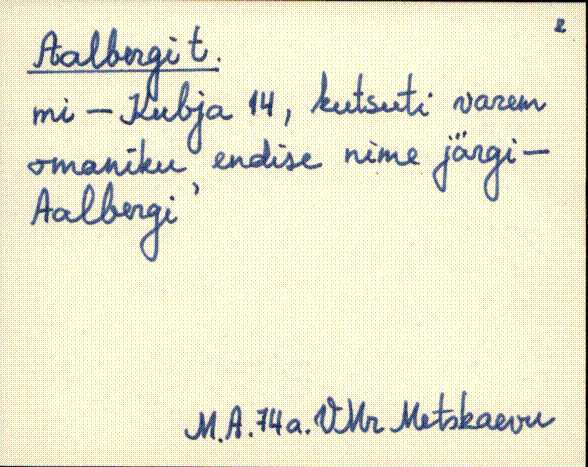 2
Aalbergi t.
mi – Kubja 14, kutsuti varem
omaniku endise nime järgi –
Aalbergi'
M.A. 74a. VMr Metskaevu